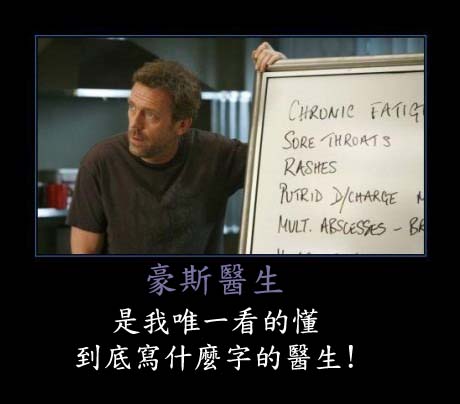 CHRONIC FATIG
SORE THROATS
RASHES
PUTRID D/CHARGE
MULT. ABSCESSES - BR
豪斯醫生
是我唯一看的懂
到底寫什麼字的醫生!